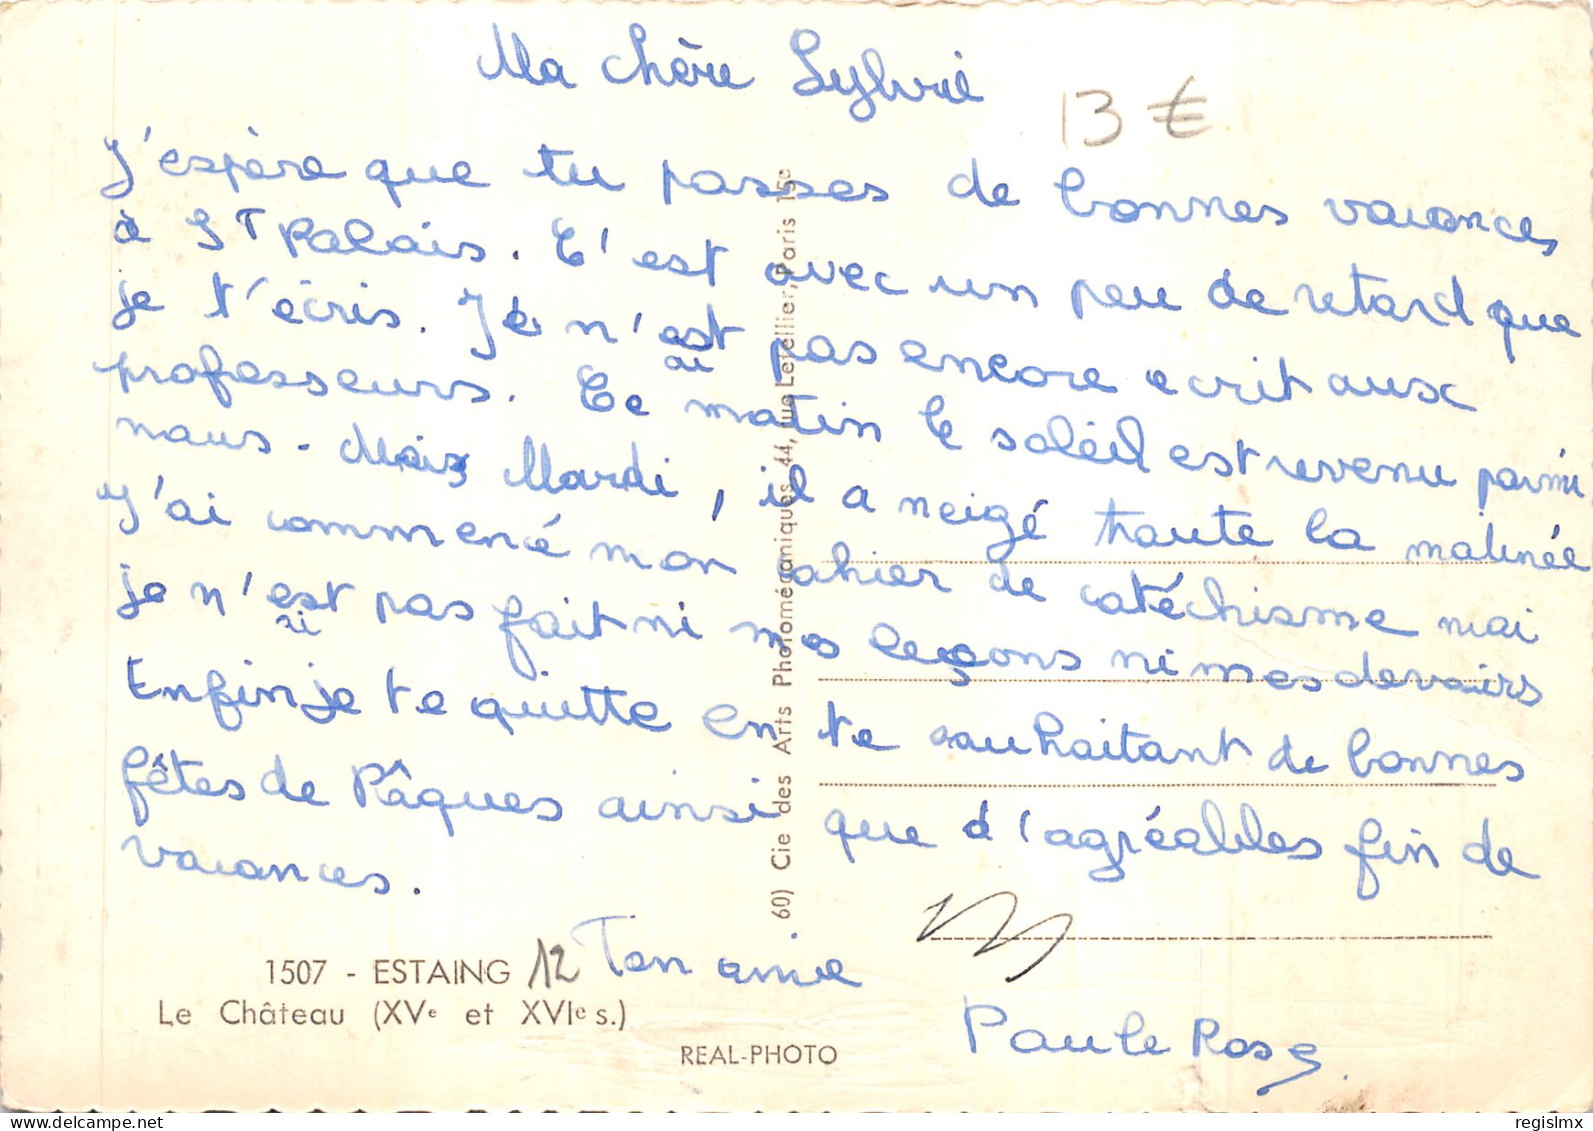 Ma chère Sylvie
13 €
J'espère que tu passes de bonnes vacances
à St Palais. C'est avec un peu de retard que
je t'écris. Je n'est pas encore ecrit aux
ai
professeurs. Ce matin le soleil est revenu parmi
nous. Mais Mardi, il a neigé toute la matinée
J'ai commencé mon cahier de catéchisme mai
je n'est pas fait ni mes leçons ni mes devoirs
ai
Enfin je te quitte en te souhaitant de bonnes
fêtes de Pâques ainsi que d'agréables fin de
vacances.
Ton amie
Paule Rose
1507 - ESTAING 12
Le Château (XVe et XVIe s.)
REAL-PHOTO
60) Cie des Arts Photomécaniques, 44, rue Letellier, Paris 15e
regislmx